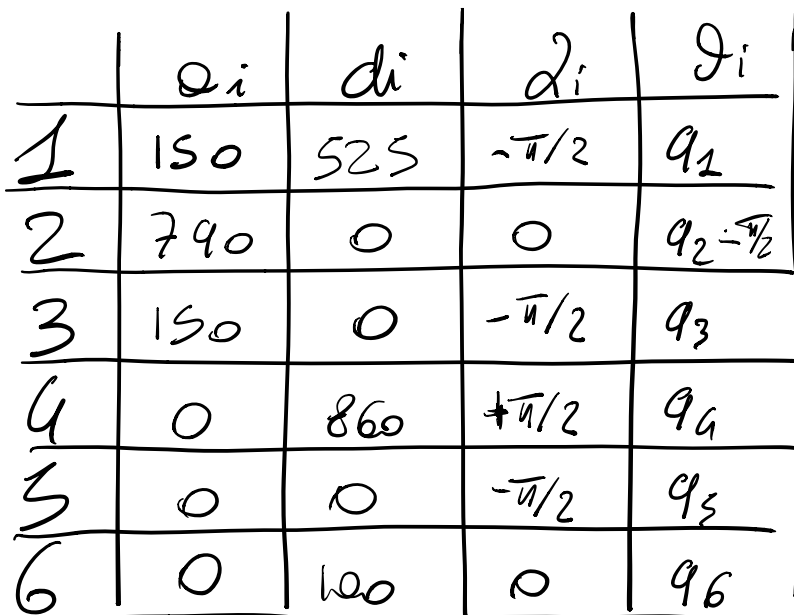 ai di αi ϑi
1 150 525 -π/2 q1
2 790 0 0 q2-π/2
3 150 0 -π/2 q3
4 0 860 +π/2 q4
5 0 0 -π/2 q5
6 0 100 0 q6